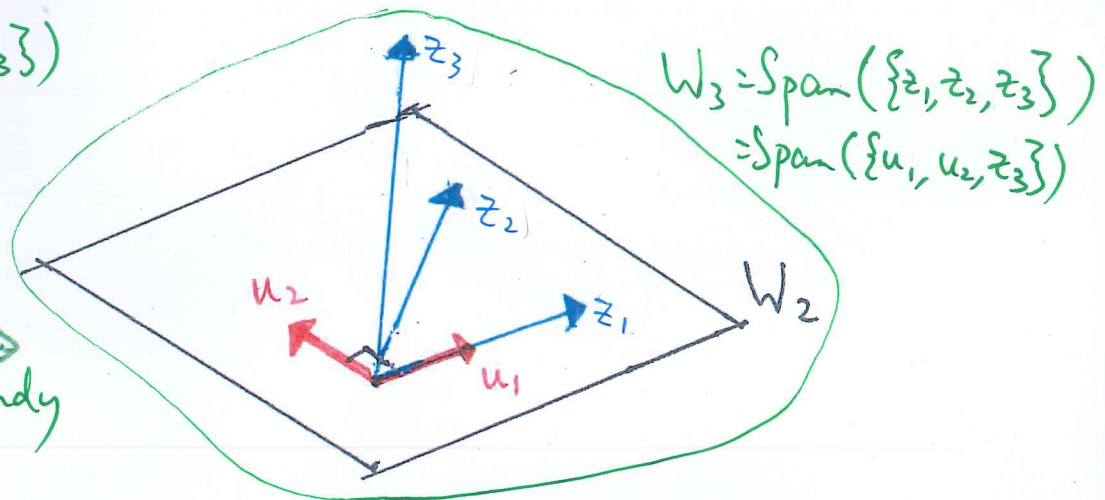 3})
z3
W3 = Span({z1, z2, z3})
= Span({u1, u2, z3})
z2
u2
W2
z1
u1
ndy